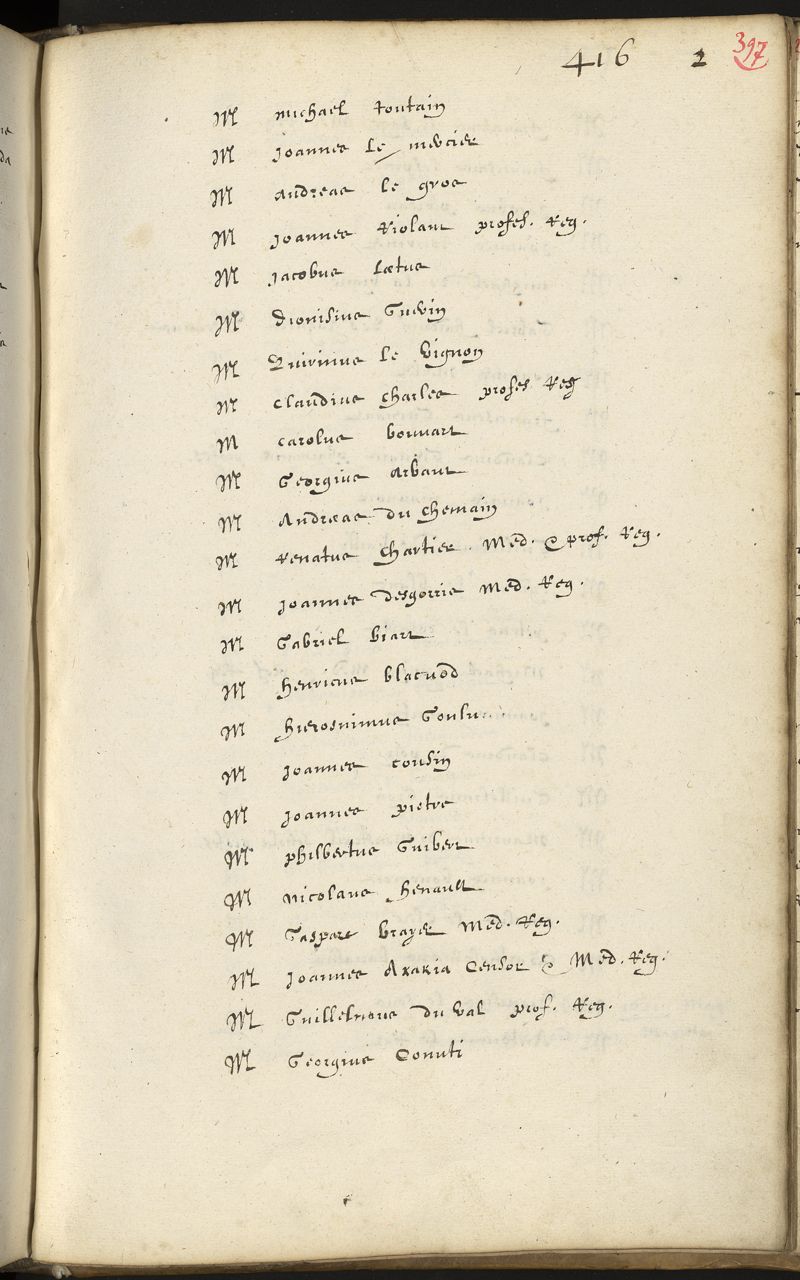 416 2 397
M michael toutain
M Joannes Le mercier
M Andreas le gros
M Joannes Riolant profes. Reg.
M Jacobus Lætus
M Dionisius Guerin
M Quirinus le Vignon
M Claudius Charles profes Reg
M Carolus bouvart
M Georgius Arbaut
M Andreas du Chemain
M Renatus Chartier. Med. & prof. Reg.
M Joannes Desgorris Med. Reg.
M Gabriel biart
M henricus blacuod
M hierosnimus Goulu
M Joannes cousin
M Joannes pietre
M philbertus Guibert
M nicolaus henault
M Gaspare brayer Med. Reg.
M Joannes Axakia Censor & Med. Reg.
M Guillelmus du Val prof. Reg.
M Georgius Conuti